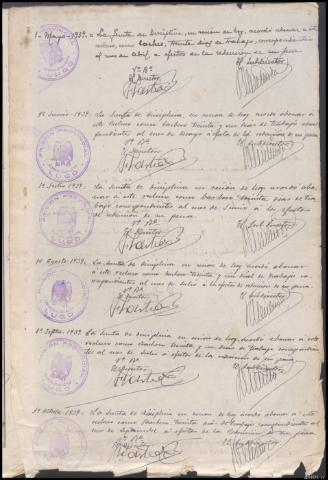 1-Mayo-1939.- La Junta de Disciplina, en sesión de hoy, acordó abonar a este
recluso, como barbero, treinta días de trabajo, correspondientes
al mes de abril, a efectos de la redención de su pena.
Vº Bº
El Director
El Subdirector
1º Junio-1939. La Junta de disciplina en sesión de hoy acordó abonar a
este recluso como barbero treinta y un días de trabajo
correspondientes al mes de Mayo a efectos de la redención de su pena
Vº Bº
El Director
El Subdirector
1º Julio-1939. La Junta de disciplina en sesión de hoy acordó abonar
a este recluso como barbero treinta días de trabajo
correspondientes al mes de Junio a los efectos
de redención de su pena
Vº Bº
El Director
El Sub Director
1º Agosto-1939. La Junta de disciplina en sesión de hoy acordó abonar
a este recluso como barbero treinta y un días de trabajo
correspondientes al mes de Julio a los efectos de redención de su pena
Vº Bº
El Director
El Subdirector
1º Septbre-1939. La Junta de disciplina en sesión de hoy, acordó abonar a este
recluso como barbero treinta y un días de trabajo correspondientes
al mes de Julio a efectos de la redención de su pena
Vº Bº
El Director
El Subdirector
1º Octubre-1939. La Junta de disciplina en sesión de hoy acordó abonar a este
recluso como barbero treinta días de trabajo correspondientes
al mes de Septiembre a efectos de la redención de su pena
Vº Bº
El Director
El Subdirector
PRISION
LUGO
PRISION
LUGO
PRISION
LUGO
PRISION
LUGO
PRISION
LUGO
PRISION
LUGO